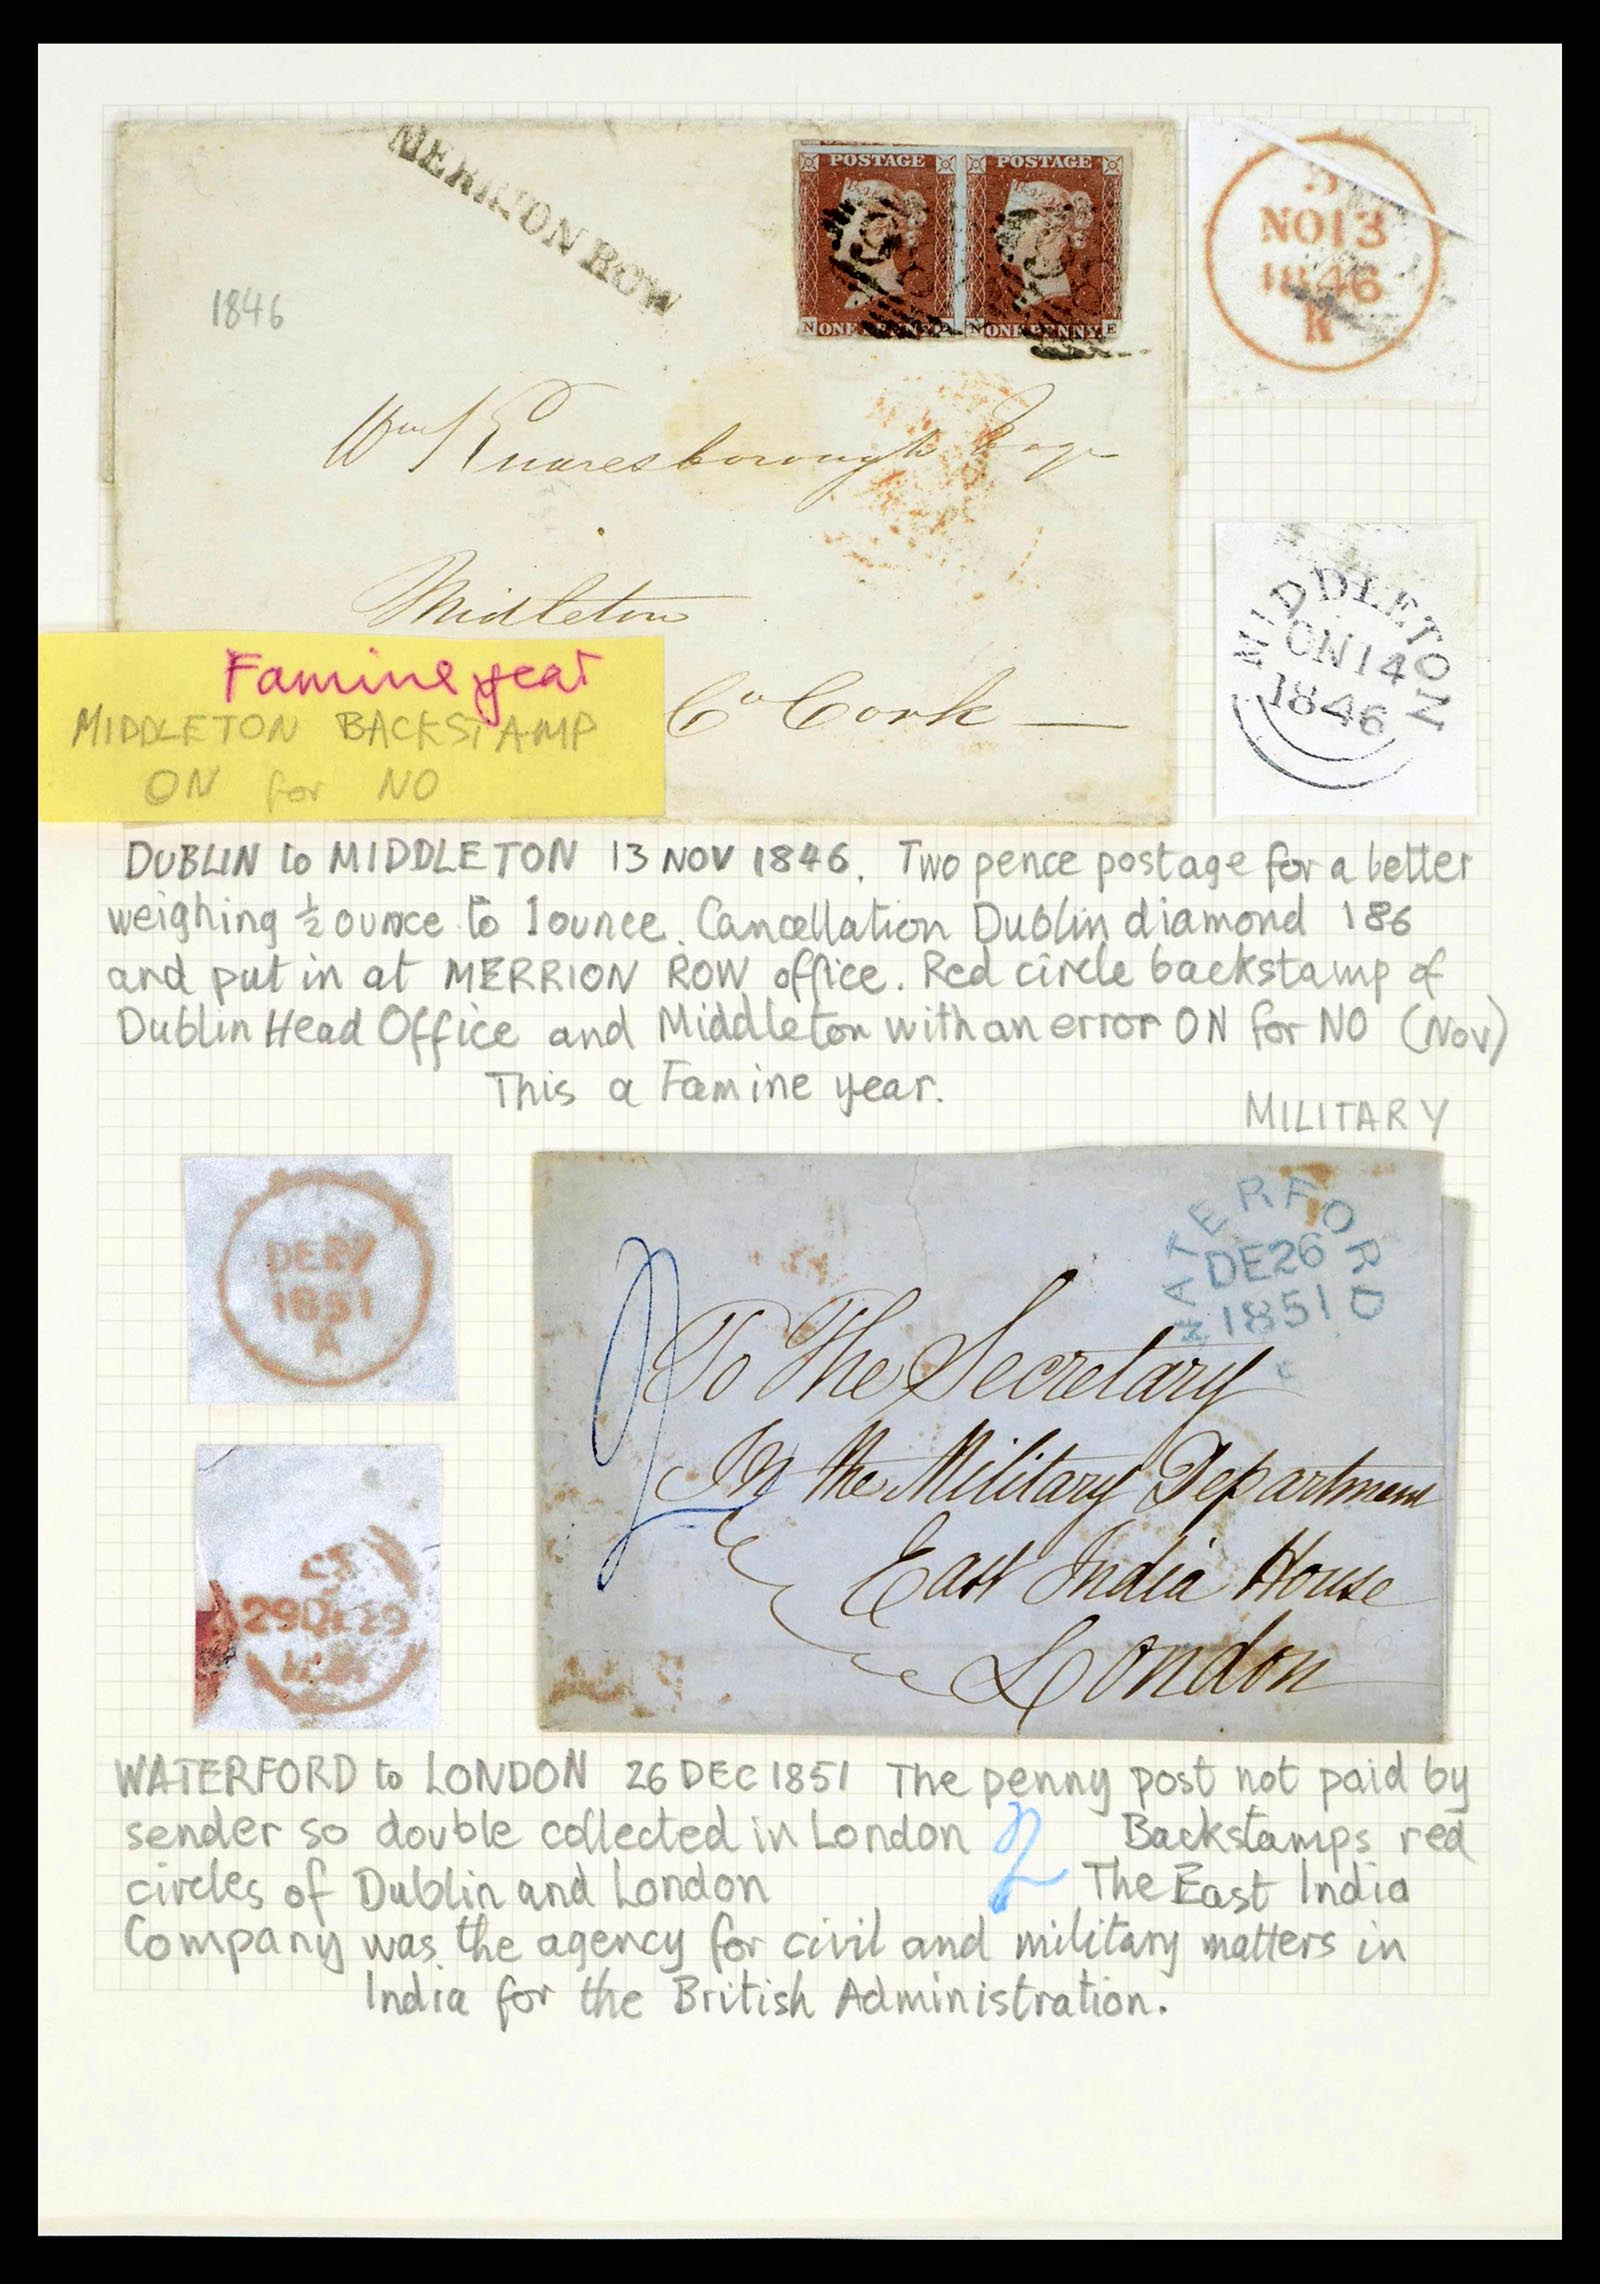 MERRION ROW
POSTAGE POSTAGE
N ONE PENNY N ONE PENNY E
NO13
1846
R
1846
Wm Knaresborough Esqr
Midleton
Co Cork
MIDDLETON
ON14
1846
Famine year
MIDDLETON BACKSTAMP
ON for NO
DUBLIN to MIDDLETON 13 NOV 1846. Two pence postage for a letter
weighing ½ ounce to 1 ounce. Cancellation Dublin diamond 186
and put in at MERRION ROW office. Red circle backstamp of
Dublin Head Office and Middleton with an error ON for NO (Nov)
This a Famine year.
MILITARY
DE27
1851
A
WATERFORD
DE26
1851
2
To The Secretary
In the Military Department
East India House
London
29DE29
WATERFORD to LONDON 26 DEC 1851 The penny post not paid by
sender so double collected in London 2 Backstamps red
circles of Dublin and London The East India
Company was the agency for civil and military matters in
India for the British Administration.